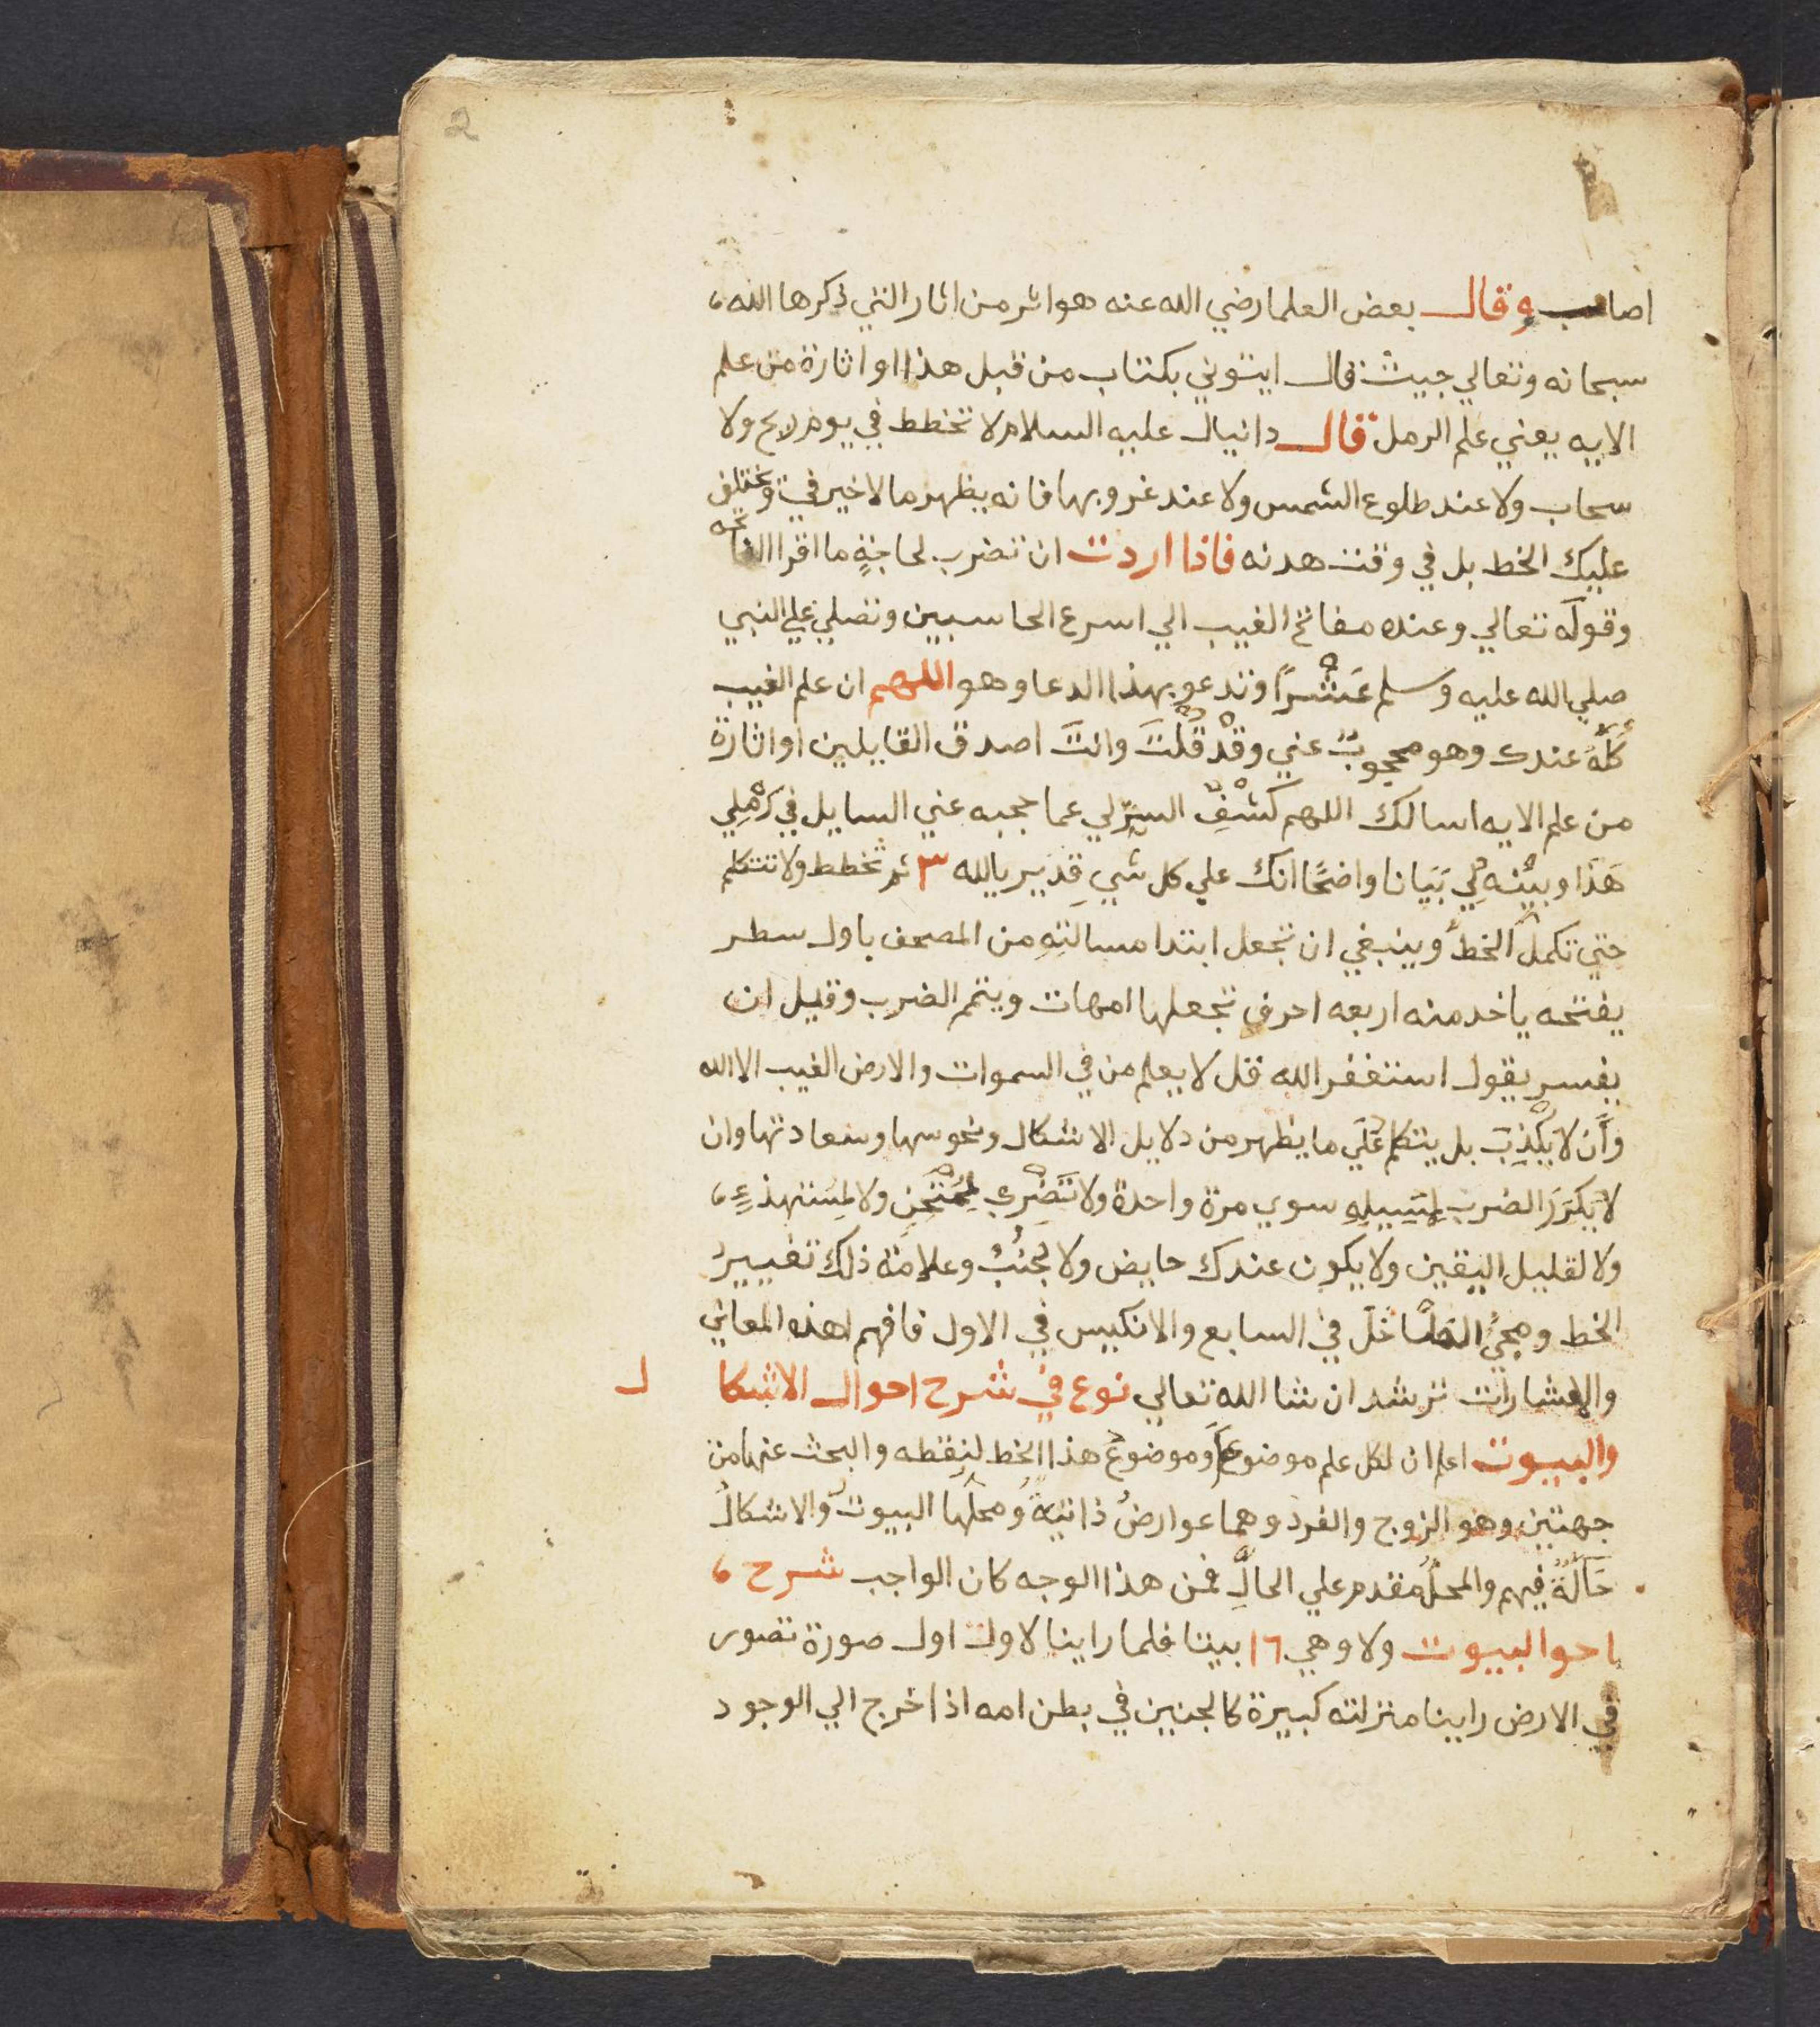 2
اصاب وقال بعض العلما رضي الله عنه هو اثر من اثار التي ذكرها الله
سبحانه وتعالي حيث قال ايتوني بكتاب من قبل هذا او اثارة من علم
الايه يعني علم الرمل قال دانيال عليه السلام لا تخطط في يوم ريح ولا
سحاب ولا عند طلوع الشمس ولا عند غروبها فانه يظهر ما لا خير في ويختلف
عليك الخط بل في وقت هدنه فاذا اردت ان تضرب لحاجةٍ ما اقرا الفاتحه
وقوله تعالي وعنده مفاتح الغيب الي اسرع الحاسبين وتصلي علي النبي
صلي الله عليه وسلم عَشْراً وتدعو بهذا الدعا وهو اللهم ان علم الغيب
كُلَّهُ عندك وهو محجوبٌ عني وقَدْ قُلْتَ وانتَ اصدق القايلين او اثارة
من علم الايه اسالك اللهم كَشْفِ السِّرِّ لي عما حجبه عني السايل في رَمْلِي
هَذَا وبَيّنْهُ لِي بَيَانا واضحًا انك علي كل شيِ قدير يالله ٣ ثم تخطط ولا تتكلم
حتي تكمل الخط وينبغي ان تجعل ابتدا مسالتِهِ من المصحف باول سطر
يفتحه ياخد منه اربعه احرف تجعلها امهات ويتم الضرب وقيل ان
يفسر يقول استغفر الله قل لا يعلم من في السموات والارض الغيب الا الله
وَأَن لا يَكْذِبَ بل يتكلم عَلَي ما يظهر من دلايل الاشكال ونحوسها وسعادتها وان
لا يكَرَرَ الضرب لِسَبِيلِهِ سوي مرة واحدة ولا تَضْرِب لِمُمْتَحِنٍ ولا لِمُستهذءٍ
ولا لقليل اليقين ولا يكون عندك حايض ولا لجنُبٌ وعلامة ذلك تغيير
الخط ومجيُ الداخل في السابع والانكيس في الاول فافهم لهذه المعاني
والاشارات ترشد ان شا الله تعالي نوع في شرح احوال الاشكال
والبيوت اعلم ان لكل علم موضوع وموضوع هذا الخط لنقطه والبحث عنها من
جهتين وهو الزوج والفرد وهما عوارضُ ذاتيةٌ ومحلها البيوتُ والاشكالُ
حَالَةٌ فيهم والمحلُ مقدم علي الحالِّ فمن هذا الوجه كان الواجب شرح
احوالبيوت ولا وهي ١٦ بيتا فلما راينا لاول اول صورة تصور
في الارض راينا منزلته كبيرة كالجنين في بطن امه اذا خرج الي الوجود